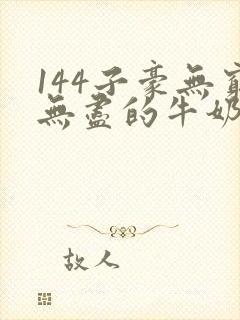 144子豪無窮
無盡的牛奶
故人